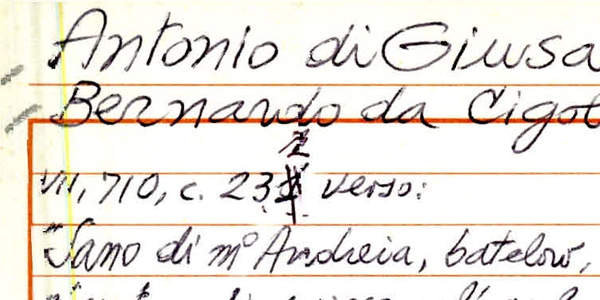 Antonio di Giusa
Bernardo da Cigot
VII, 710, c. 232 verso:
"Sano di m° Andreia, batelow,